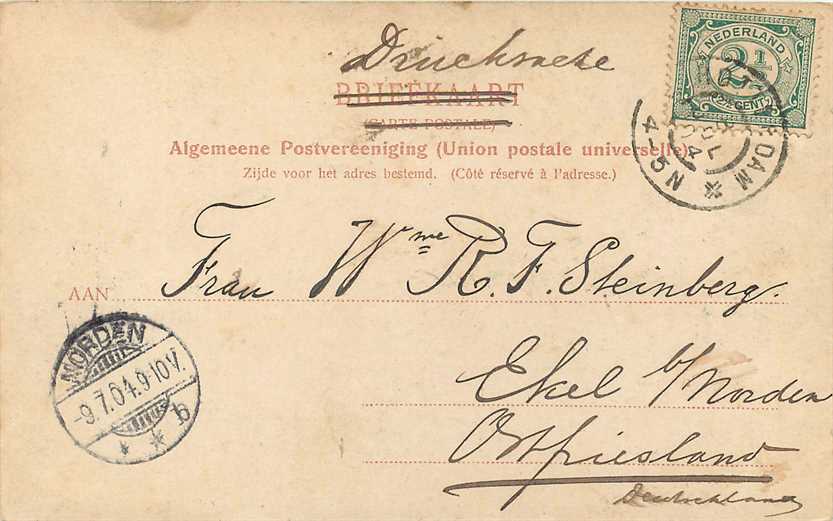 Drucksache
BRIEFKAART
(CARTE POSTALE)
NEDERLAND
2½
(2½ CENT)
DAM
4-5N
JUL
04
Algemeene Postvereeniging (Union postale universelle)
Zijde voor het adres bestemd. (Côté réservé à l'adresse.)
AAN
Frau Wme R. F. Steinberg.
Ekel b/Norden
Ostfriesland
Deutschland
NORDEN
-9.7.04.9-10V.
* * b